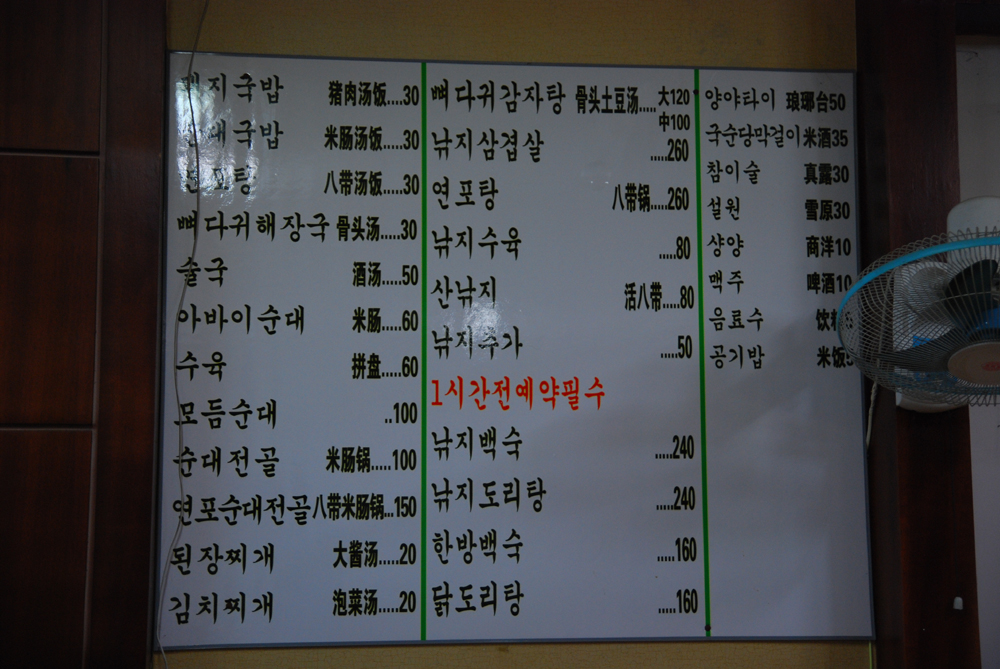 돼지국밥 猪肉汤饭....30
순대국밥 米肠汤饭.....30
연포탕 八带汤饭.....30
뼈다귀해장국 骨头汤.....30
술국 酒汤.....50
아바이순대 米肠.....60
수육 拼盘.....60
모듬순대 ..100
순대전골 米肠锅.....100
연포순대전골 八带米肠锅...150
된장찌개 大酱汤.....20
김치찌개 泡菜汤.....20
뼈다귀감자탕 骨头土豆汤..... 大120
中100
낚지삼겹살 .....260
연포탕 八带锅.....260
낚지수육 .....80
산낚지 活八带.....80
낚지추가 .....50
1시간전예약필수
낚지백숙 .....240
낚지도리탕 .....240
한방백숙 .....160
닭도리탕 .....160
양야타이 琅琊台50
국순당막걸이 米酒35
참이슬 真露30
설원 雪原30
샹양 商洋10
맥주 啤酒10
음료수 饮料
공기밥 米饭5